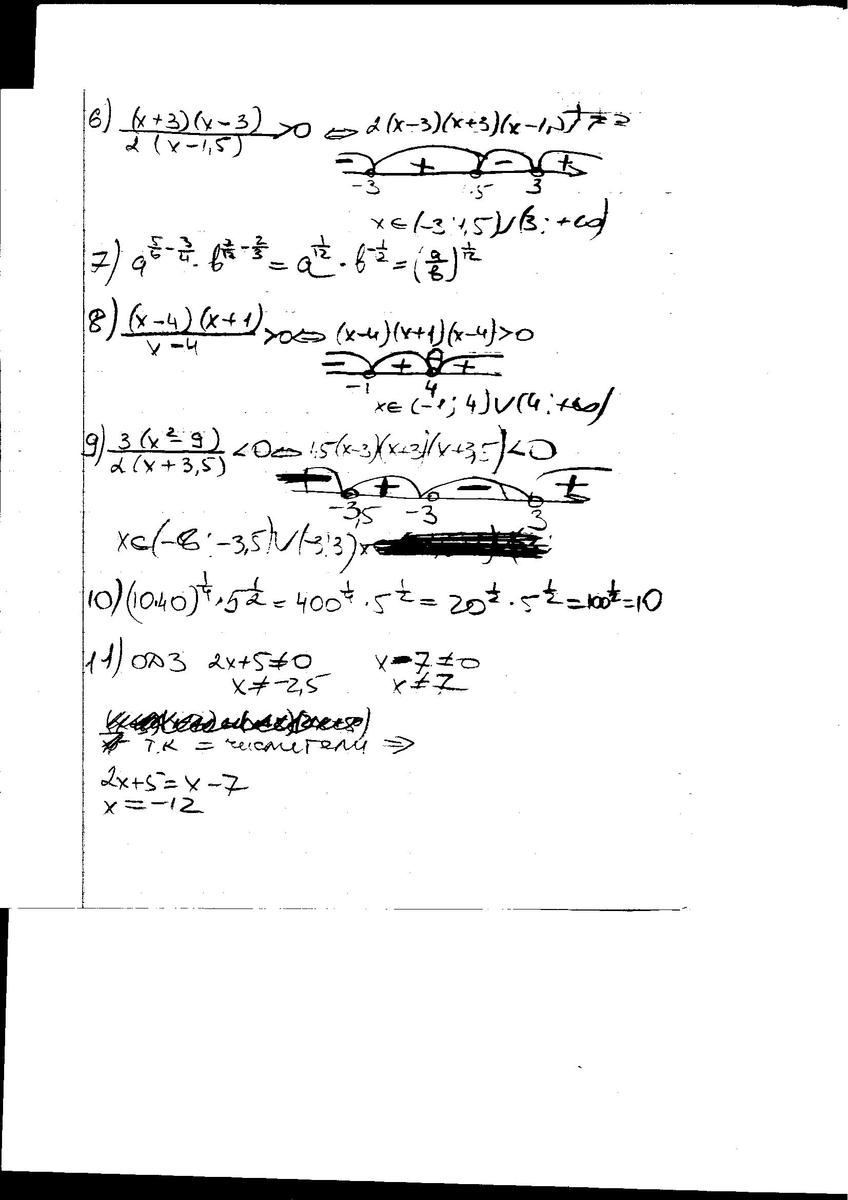 6) (x+3)(x-3) / 2(x-1,5) >0 ⇔ 2(x-3)(x+3)(x-1,5)
- + - +
-3 ,5 3
x∈(-3;1,5)∪(3;+∞)
7) a^(5/6-3/4) · b^(7/12-2/3) = a^(1/12) · b^(-1/12) = (a/b)^(1/12)
8) (x-4)(x+1) / x-4 >0 ⇔ (x-4)(x+1)(x-4)>0
- + +
-1 4
x∈(-1;4)∪(4;+∞)
9) 3(x²-9) / 2(x+3,5) <0 ⇔ 1,5(x-3)(x+3)(x+3,5)<0
- + - +
-3,5 -3 3
x∈(-∞;-3,5)∪(-3;3)
10) (10·40)^(1/4) · 5^(1/2) = 400^(1/4) · 5^(1/2) = 20^(1/2) · 5^(1/2) = 100^(1/2) = 10
11) ОДЗ 2x+5≠0 x-7≠0
x≠-2,5 x≠7
т.к = числители ⇒
2x+5=x-7
x=-12